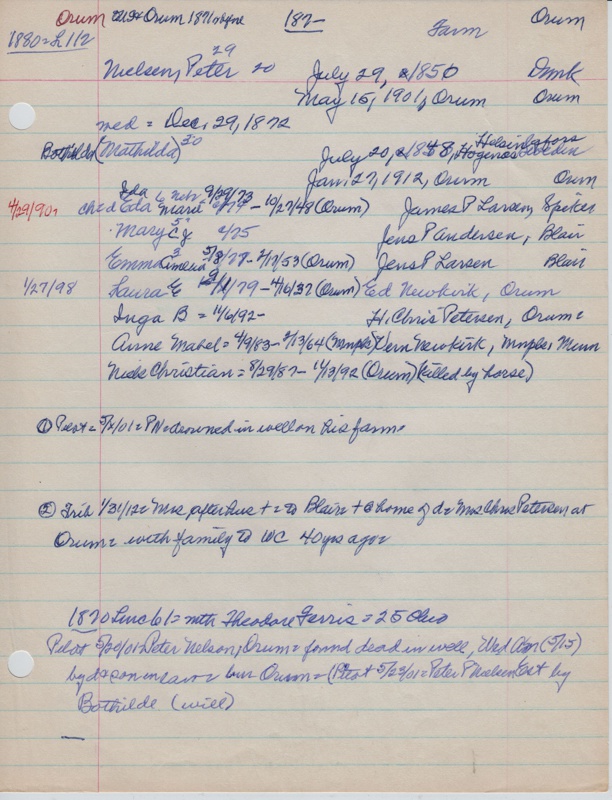 Orum Orum 1871 187- Farm Orum
1880=L112
29
Nielsen, Peter 20 July 29, 1850 Dmk
May 15, 1901, Orum Orum
med = Dec. 29, 1872
Bothilda (Mathilda) 30 July 20, 1848, Hogenas Helsingfors Sweden
Jan. 27, 1912, Orum Orum
Ida 9/29/73
4/29/90 ch = d Eda Marie - 10/27/48 (Orum) James P Larsen, Spiker
Mary C 5 /75 Jens P Andersen, Blair
Emma Amelia 3 5/8/77 - 2/17/53 (Orum) Jens P Larsen Blair
1/27/98 Laura E /79 - 4/16/37 (Orum) Ed Newkirk, Orum
Inga B = 11/6/92- H. Chris Petersen, Orum=
Anne Mabel = 4/9/83 - 2/13/64 (Mmpls) Vern Newkirk, Mmpls, Minn
Niels Christian = 8/29/87 - 11/13/92 (Orum) (killed by horse)
① Pilot = 5/ /01 = PN = drowned in well on his farm=
② Trib 1/31/12 = Mrs after hus + = to Blair = + @ home of d = Mrs Chris Petersen at
Orum = with family to WC 40 yrs ago=
1870 Linc 61 = with Theodore Ferris = 25 Ohio
Pilot 5/22/01 = Peter Nelson, Orum = found dead in well, Wed (5/15)
by d + son in law = bur Orum = (Pilot 5/29/01 = Peter P Nielsen Est by
Bothilde (will)
—